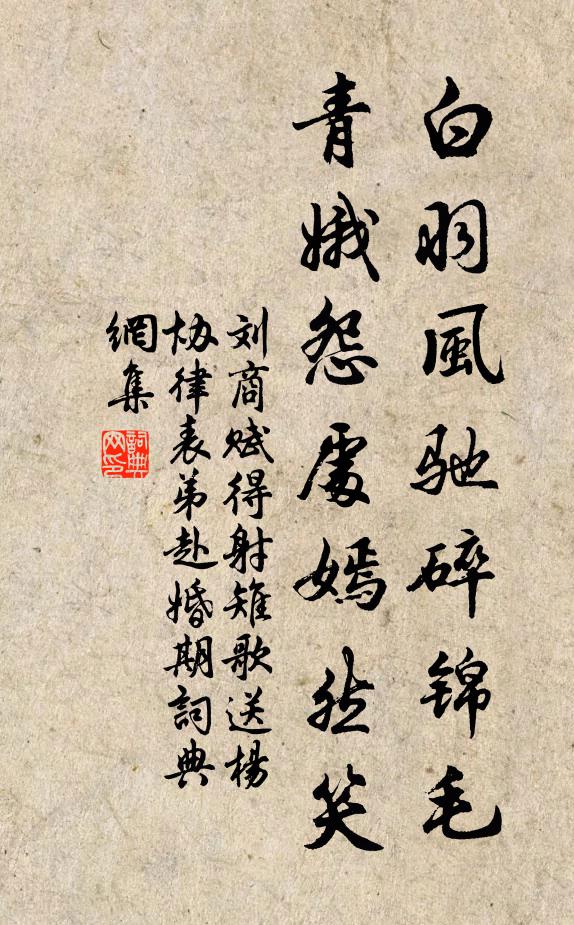 白羽風馳碎錦毛
青娥怨處嫣然笑
刘商赋得射雉歌送楊
協律表弟赴婚期詞典
網集
詞典网印